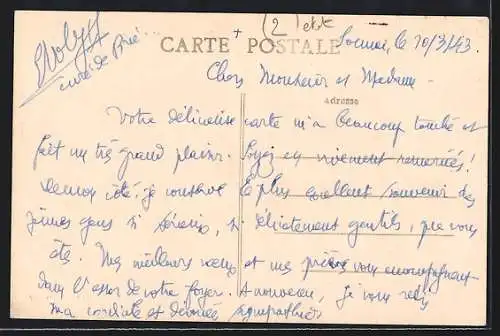 curé de Brié
CARTE POSTALE
le 10/3/43.
Chers Monsieur et Madame -
Adresse
Votre délicatesse carte m'a beaucoup touché et
fait un très grand plaisir. Soyez en vivement remerciés !
De mon côté, je conserve le plus excellent souvenir des
jeunes gens si sérieux, si délicatement gentils, que vous
êtes. Mes meilleurs vœux et mes prières vous accompagnent
dans l'essor de votre foyer. A nouveau, je vous redis
ma cordiale et dévouée sympathie